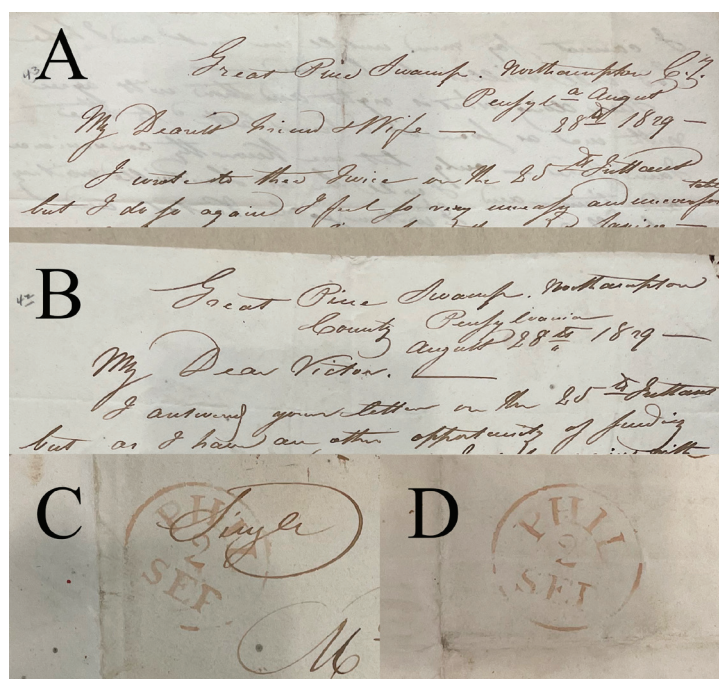 A
43
Great Pine Swamp. Northampton Cy.
Pensylª August
28th 1829 —
My Dearest friend & Wife —
I wrote to thee Twice on the 25th Instant
but I do so again I feel so very uneasy and uncomfor
table
B
42
Great Pine Swamp. Northampton
County Pensylvania
August 28th 1829 —
My Dear Victor. —
I answered your letter on the 25th Instant
but as I have an other opportunity of sending
with
C
PHIL
2
SEP
Single
M
D
PHIL
2
SEP